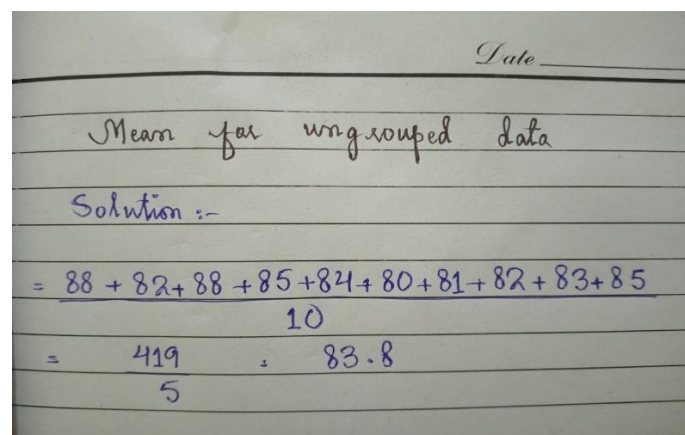 Date
Mean for ungrouped data
Solution :-
= 88 + 82 + 88 + 85 + 84 + 80 + 81 + 82 + 83 + 85
10
= 419 = 83.8
5